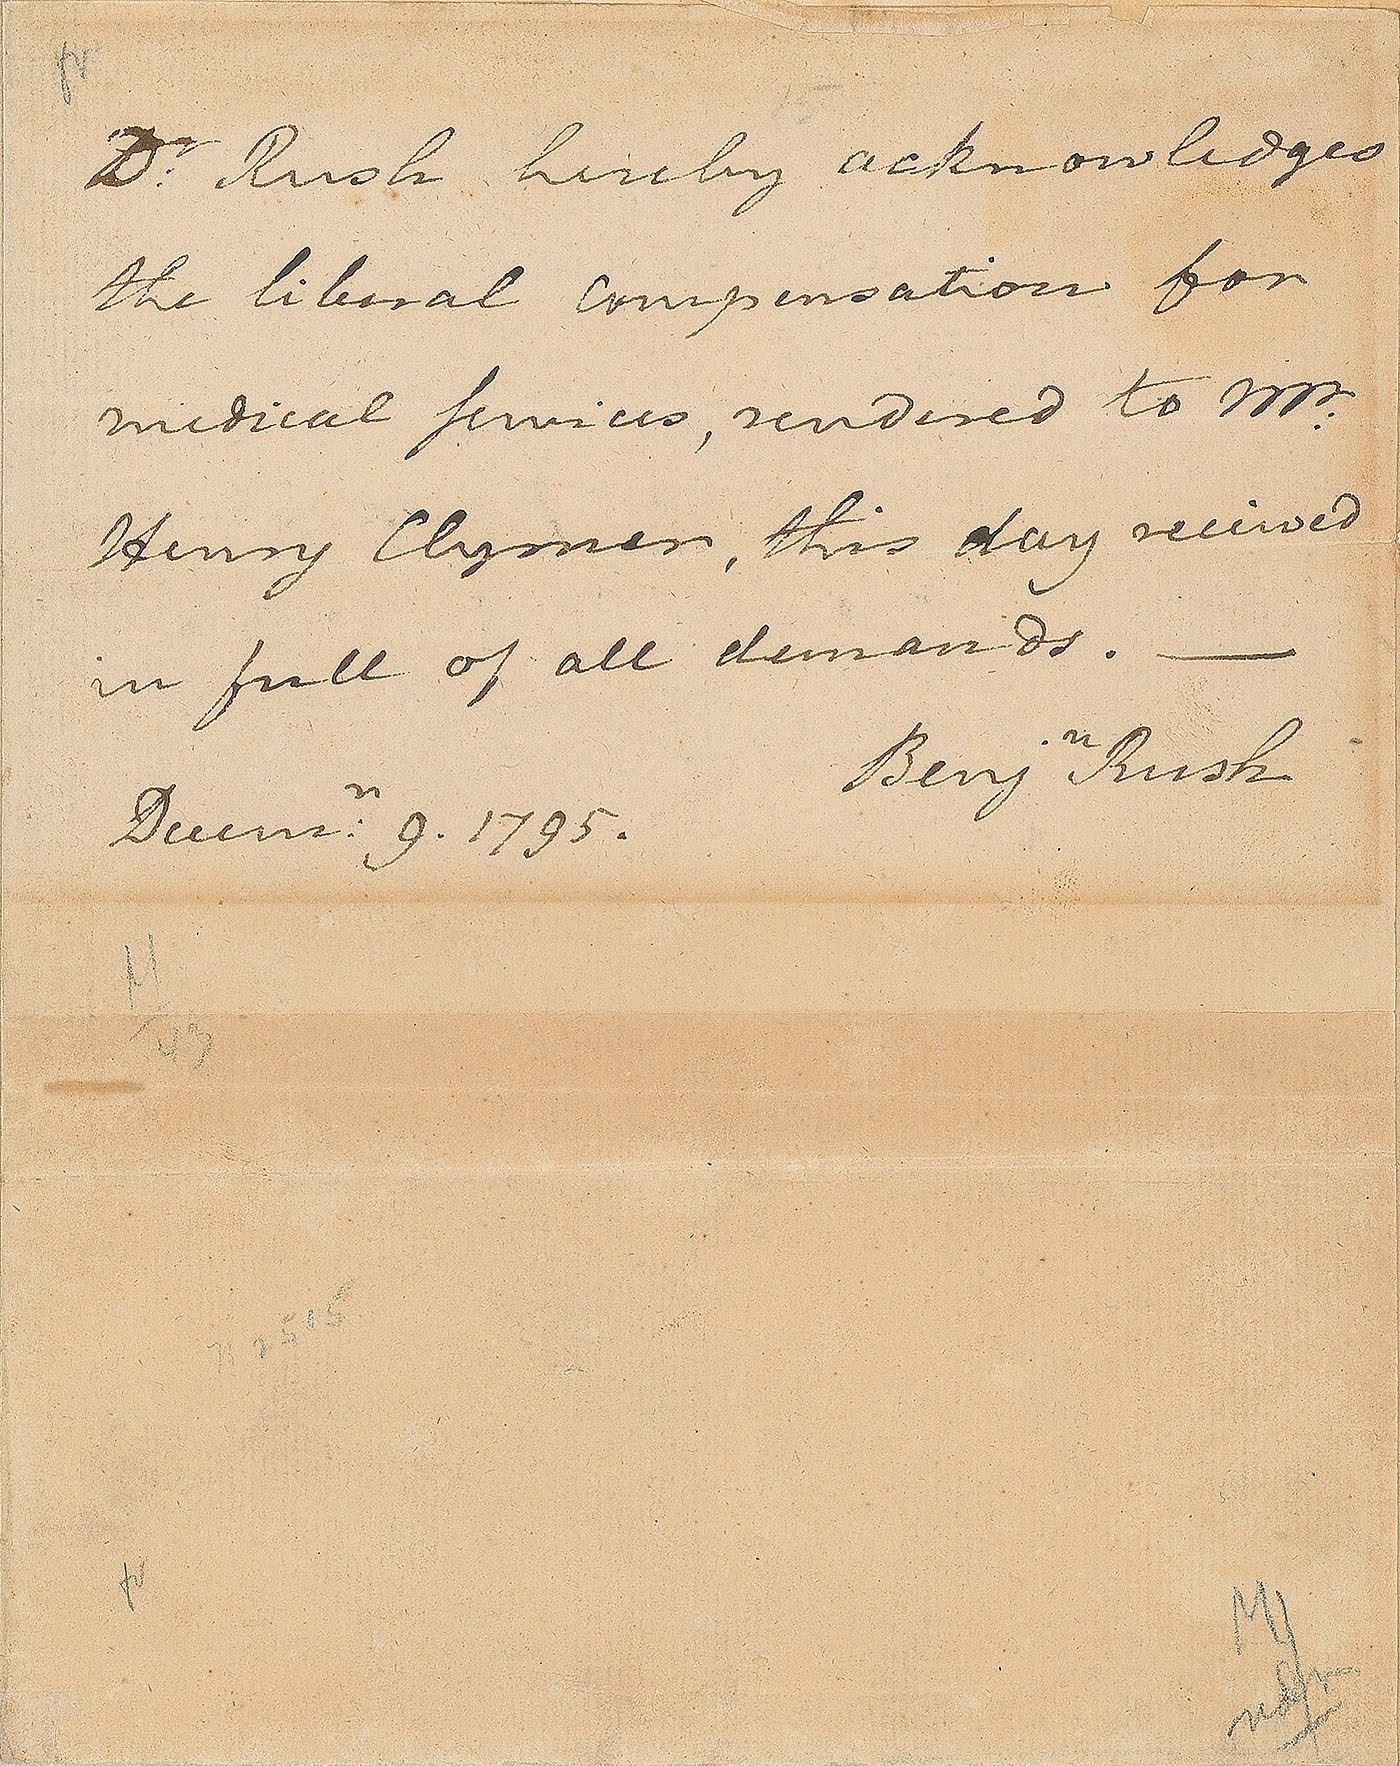 Dr. Rush hereby acknowledges
the liberal compensation for
medical services, rendered to Mr.
Henry Clymer, this day received
in full of all demands. —
Benjn Rush
Decemr: 9. 1795.
43